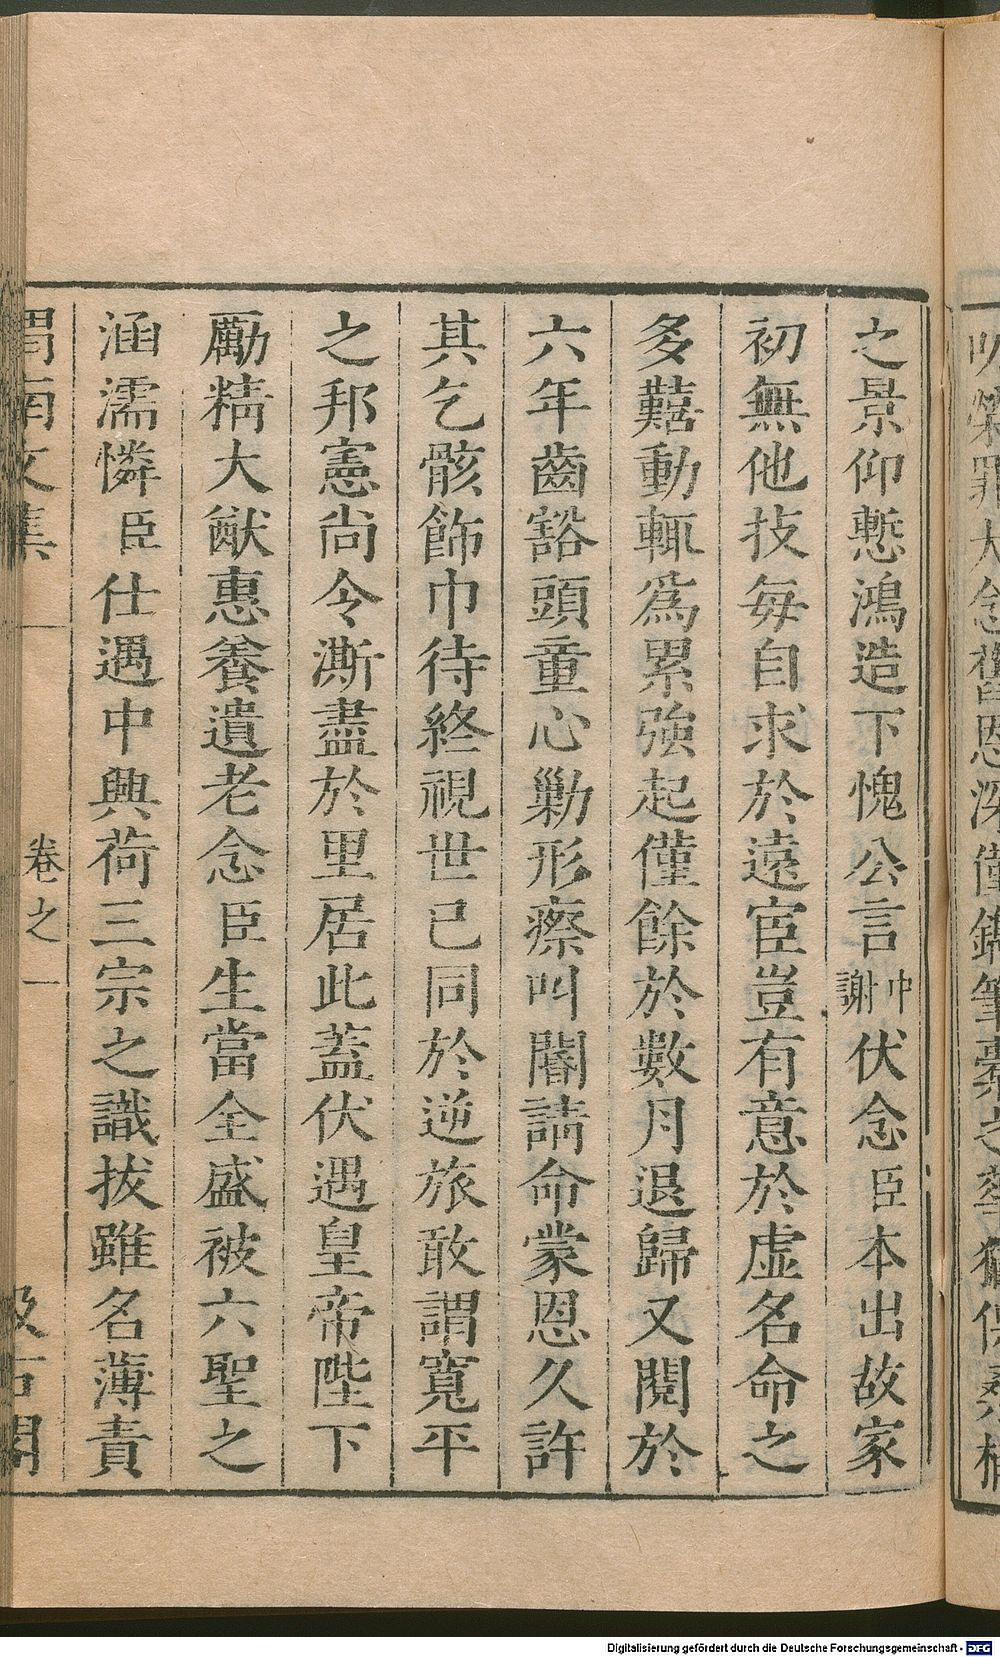 之景仰慙鴻造下愧公言中謝伏念臣本出故家
初無他技每自求於遠宦豈有意於虛名命之
多囏動輒為累強起僅餘於數月退歸又閱於
六年齒豁頭童心勦形瘵叫閽請命蒙恩久許
其乞骸飾巾待終視世已同於逆旅敢謂寬平
之邦憲尚令澌盡於里居此蓋伏遇皇帝陛下
勵精大猷惠養遺老念臣生當全盛被六聖之
涵濡憐臣仕遇中興荷三宗之識拔雖名薄責
渭南文集
卷之一
汲古閣
Digitalisierung gefördert durch die Deutsche Forschungsgemeinschaft - DFG